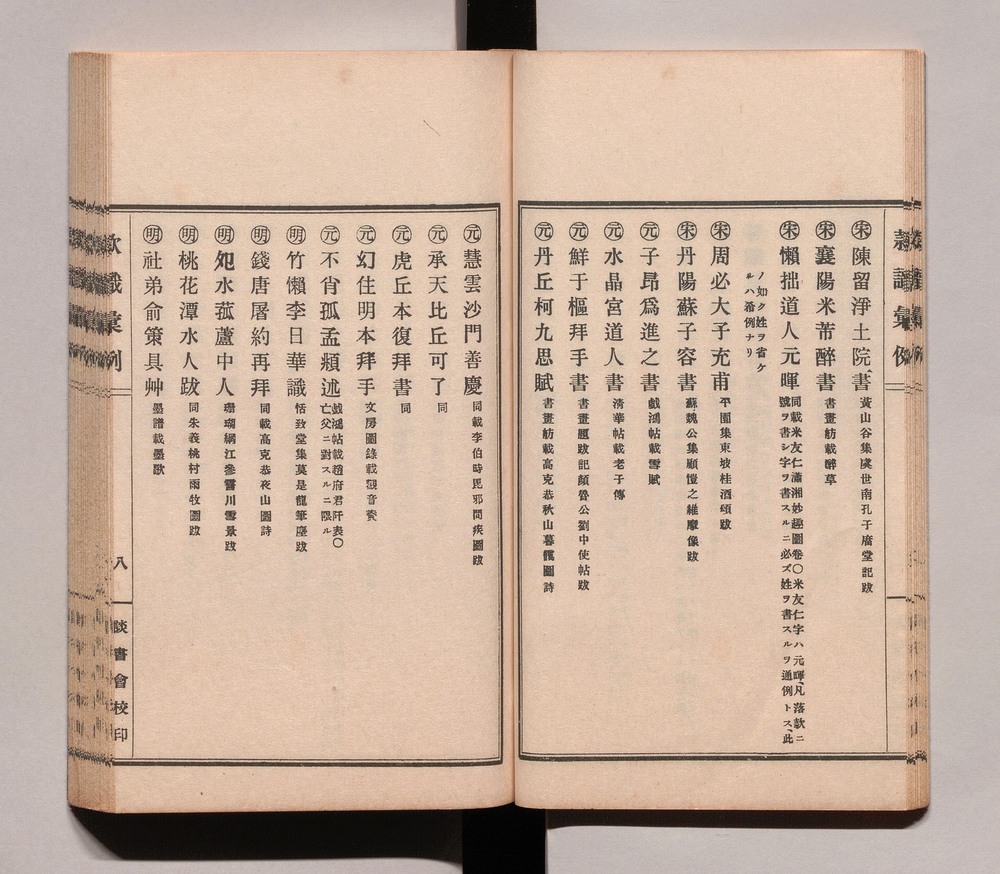 ㊁宋 陳留淨土院書 黃山谷集虞世南孔子廟堂記跋
宋 襄陽米芾醉書 書畫舫載醉草
宋 懶拙道人元暉 同載米友仁瀟湘妙趣圖卷〇米友仁字ハ元暉、凡落款ニ
號ヲ書シ字ヲ書スルニ必ズ姓ヲ書スルヲ通例トス、此
ノ如ク姓ヲ省ケ
ルハ希例ナリ
宋 周必大子充甫 平園集東坡桂酒頌跋
宋 丹陽蘇子容書 蘇魏公集顧愷之維摩像跋
元 子昂爲進之書 戲鴻帖載雪賦
元 水晶宮道人書 淸華帖載老子傳
元 鮮于樞拜手書 書畫題跋記顏魯公劉中使帖跋
元 丹丘柯九思賦 書畫舫載高克恭秋山暮靄圖詩
元 慧雲沙門善慶 同載李伯時毘邪問疾圖跋
元 承天比丘可了 同
元 虎丘本復拜書 同
元 幻住明本拜手 文房圖錄載觀音贊
元 不肖孤孟頫述 戲鴻帖載趙府君阡表〇
亡父ニ對スルニ限ル
明 竹懶李日華識 恬致堂集莫是龍筆麈跋
明 錢唐屠約再拜 同載高克恭夜山圖詩
明 夗水菰蘆中人 珊瑚網江參霅川雪景跋
明 桃花潭水人跋 同朱羲桃村雨牧圖跋
明 社弟俞策具艸 墨譜載墨歌
款識彙例
八
談書會校印